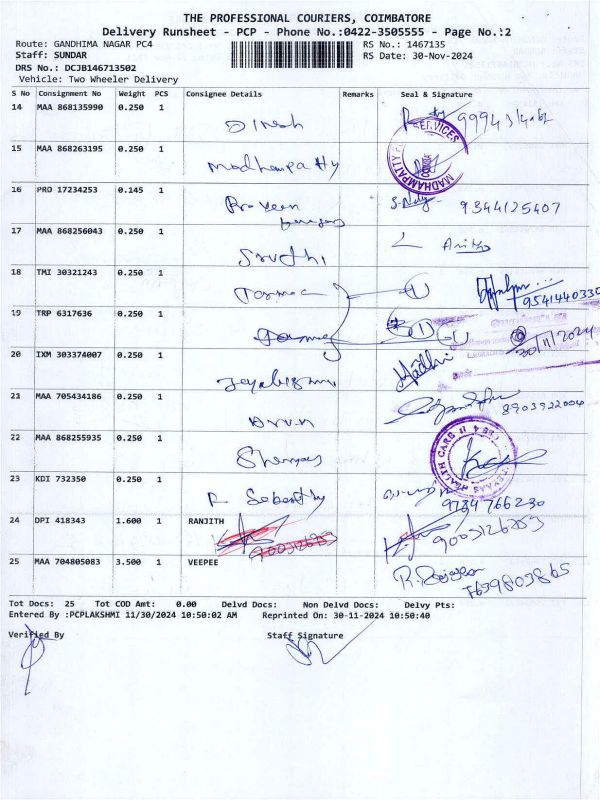 THE PROFESSIONAL COURIERS, COIMBATORE
Delivery Runsheet - PCP - Phone No.:0422-3505555 - Page No.:2
Route: GANDHIMA NAGAR PC4
RS No.: 1467135
Staff: SUNDAR
RS Date: 30-Nov-2024
DRS No.: DCJB146713502
Vehicle: Two Wheeler Delivery
S No Consignment No Weight PCS Consignee Details Remarks Seal & Signature
14 MAA 868135990 0.250 1
Dinesh
15 MAA 868263195 0.250 1
SERVICES
MADHAMPATTY
Madhampatty
16 PRO 17234253 0.145 1
Praveen
9344125407
17 MAA 868256043 0.250 1
Sruthi
18 TMI 30321243 0.250 1
19 TRP 6317636 0.250 1
30/11/2024
20 IXM 303374007 0.250 1
Madhi
21 MAA 705434186 0.250 1
Arun
8903922004
22 MAA 868255935 0.250 1
HEALTH CARE
23 KDI 732350 0.250 1
R
9784766230
24 DPI 418343 1.600 1 RANJITH
25 MAA 704805083 3.500 1 VEEPEE
Tot Docs: 25 Tot COD Amt: 0.00 Delvd Docs: Non Delvd Docs: Delvy Pts:
Entered By :PCPLAKSHMI 11/30/2024 10:50:02 AM Reprinted On: 30-11-2024 10:50:40
Verified By
Staff Signature